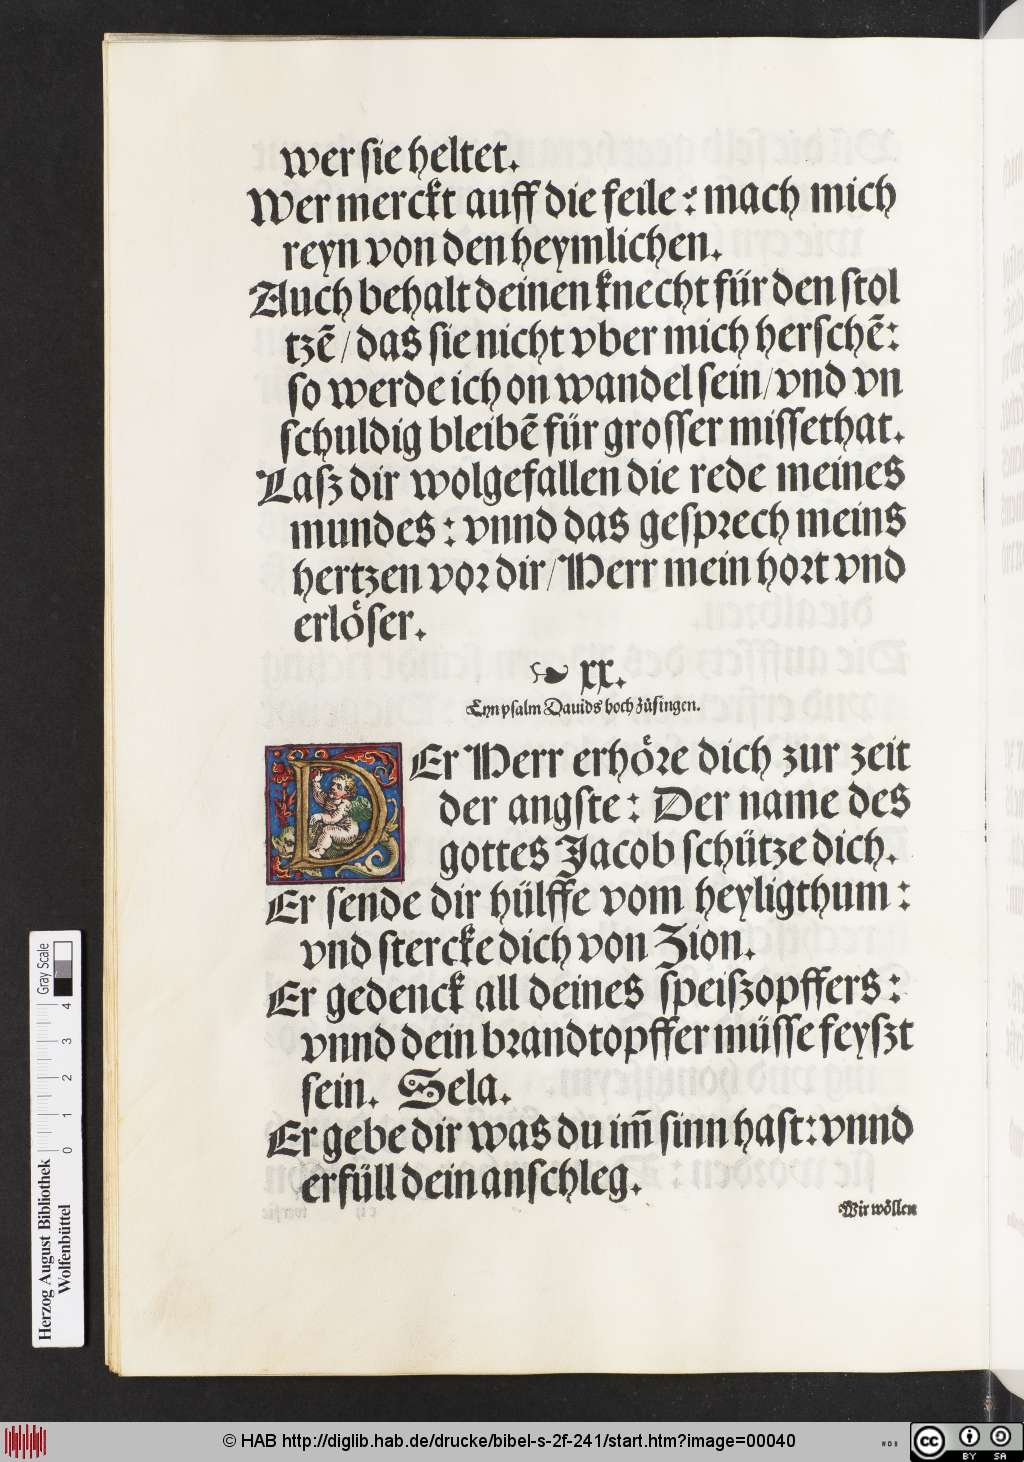 wer sie heltet.
Wer merckt auff die feile: mach mich
reyn von den heymlichen.
Auch behalt deinen knecht für den stol
tzē/das sie nicht vber mich herschē:
so werde ich on wandel sein/vnd vn
schuldig bleibē für grosser missethat.
Lasz dir wolgefallen die rede meines
mundes: vnnd das gesprech meins
hertzen vor dir/Herr mein hort vnd
erlöser.
xx.
Eyn psalm Dauids hoch zůsingen.
DEr Herr erhöre dich zur zeit
der angste: Der name des
gottes Jacob schütze dich.
Er sende dir hülffe vom heyligthum:
vnd stercke dich von Zion.
Er gedenck all deines speiszopffers:
vnnd dein brandtopffer müsse feyszt
sein. Sela.
Er gebe dir was du im̄ sinn hast: vnnd
erfüll dein anschleg.
Wir wöllen
Herzog August Bibliothek
Wolfenbüttel
0 1 2 3 4
Gray Scale
© HAB http://diglib.hab.de/drucke/bibel-s-2f-241/start.htm?image=00040
WDB
cc BY SA